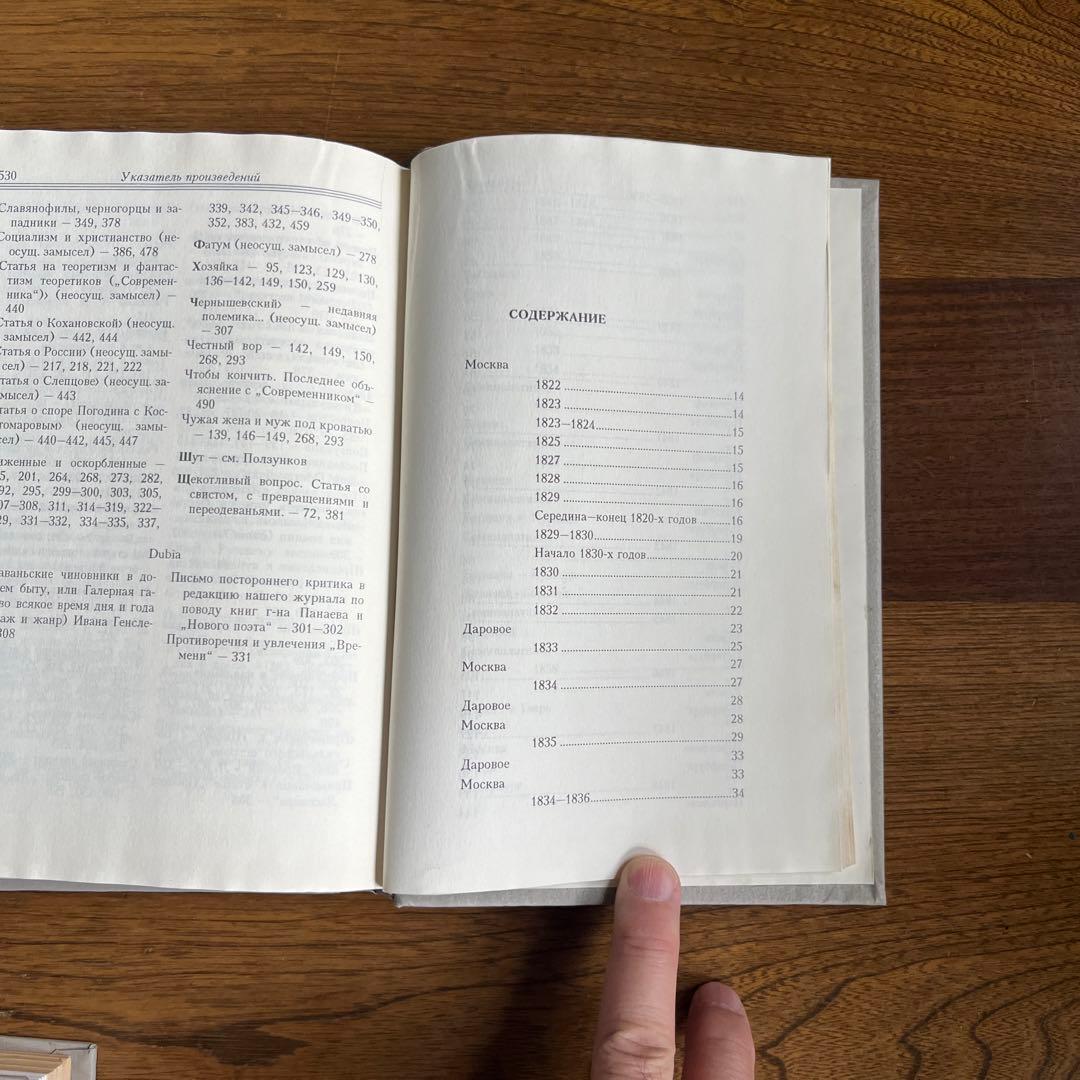 530
Указатель произведений
Славянофилы, черногорцы и за-
падники — 349, 378
Социализм и христианство (не-
осущ. замысел) — 386, 478
Статья на теоретизм и фантас-
тизм теоретиков („Современ-
ника“)⟩ (неосущ. замысел) —
440
Статья о Кохановской⟩ (неосущ.
замысел) — 442, 444
Статья о России⟩ (неосущ. замы-
сел) — 217, 218, 221, 222
татья о Слепцове⟩ (неосущ. за-
мысел) — 443
татья о споре Погодина с Кос-
томаровым⟩ (неосущ. замы-
сел) — 440—442, 445, 447
иженные и оскорбленные —
5, 201, 264, 268, 273, 282,
92, 295, 299—300, 303, 305,
07—308, 311, 314—319, 322—
29, 331—332, 334—335, 337,
339, 342, 345—346, 349—350,
352, 383, 432, 459
Фатум (неосущ. замысел) — 278
Хозяйка — 95, 123, 129, 130,
136—142, 149, 150, 259
Чернышев⟨ский⟩ — недавняя
полемика... (неосущ. замысел)
— 307
Честный вор — 142, 149, 150,
268, 293
Чтобы кончить. Последнее объ-
яснение с „Современником“ —
490
Чужая жена и муж под кроватью
— 139, 146—149, 268, 293
Шут — см. Ползунков
Щекотливый вопрос. Статья со
свистом, с превращениями и
переодеваньями. — 72, 381
Dubia
аваньские чиновники в до-
ем быту, или Галерная га-
во всякое время дня и года
аж и жанр) Ивана Генсле-
308
Письмо постороннего критика в
редакцию нашего журнала по
поводу книг г-на Панаева и
„Нового поэта“ — 301—302
Противоречия и увлечения „Вре-
мени“ — 331
СОДЕРЖАНИЕ
Москва
1822 ........ 14
1823 ........ 14
1823—1824........ 15
1825 ........ 15
1827 ........ 15
1828 ........ 16
1829 ........ 16
Середина—конец 1820-х годов ........ 16
1829—1830........ 19
Начало 1830-х годов........ 20
1830 ........ 21
1831 ........ 21
1832 ........ 22
Даровое 23
1833 ........ 25
Москва 27
1834 ........ 27
Даровое 28
Москва 28
1835 ........ 29
Даровое 33
Москва 33
1834—1836........ 34